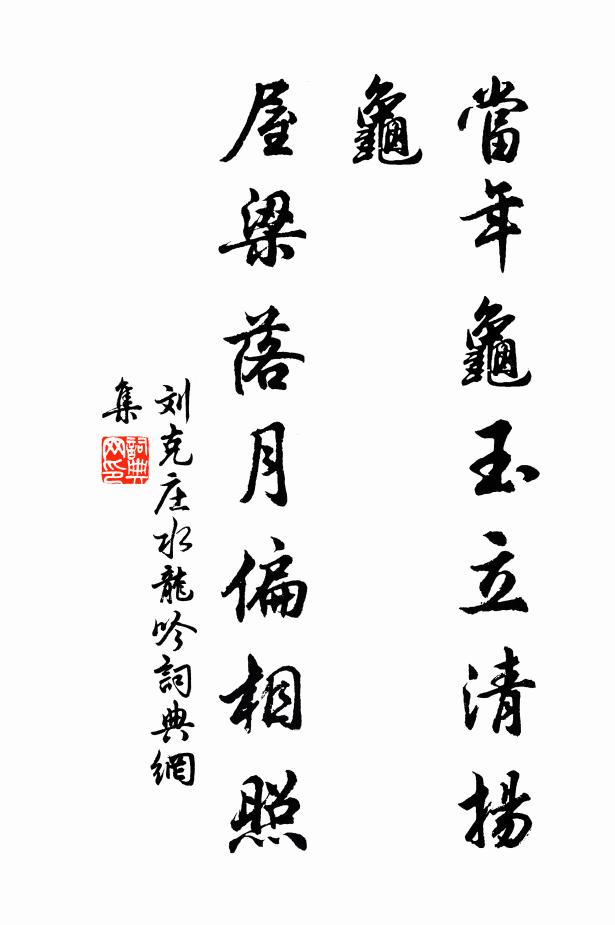 當年龜玉立清揚
龜
屋梁落月偏相照
刘克庄水龍吟詞典網
集
詞典
网印